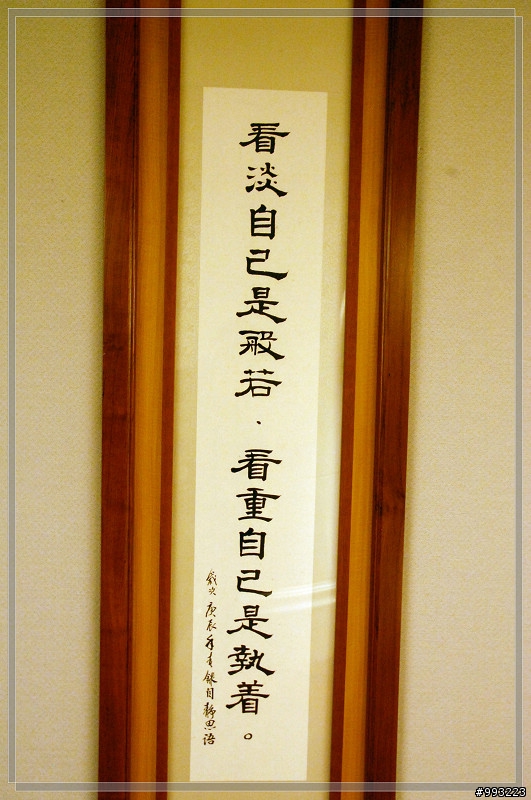 看淡自己是般若．看重自己是執着。
歲次庚辰年青銀自靜思語
#993223